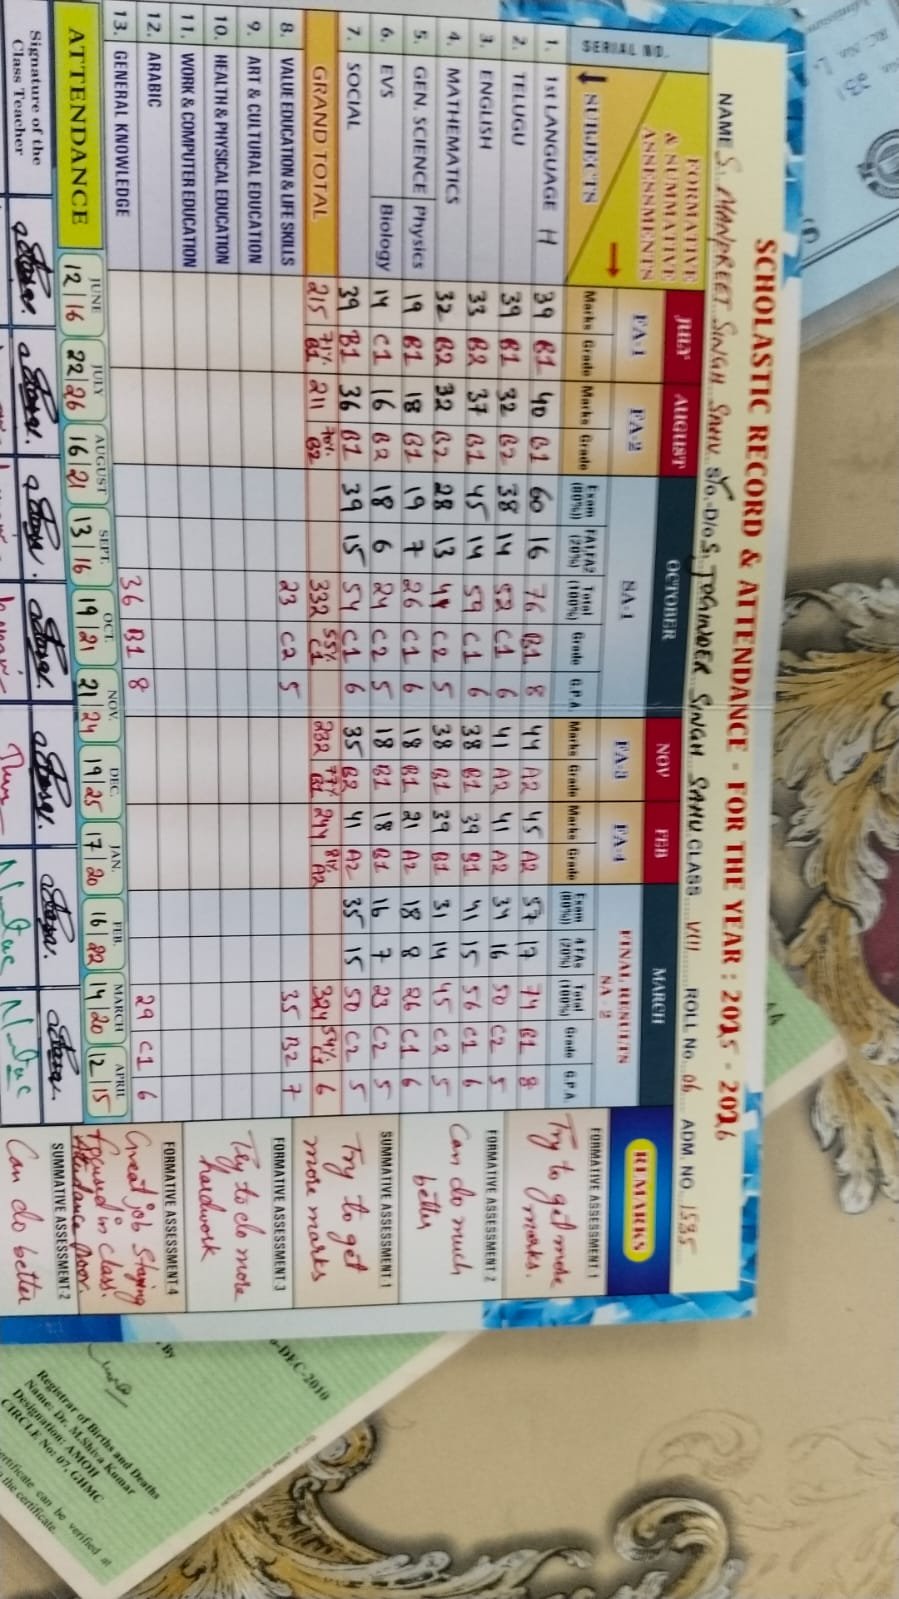 SCHOLASTIC RECORD & ATTENDANCE - FOR THE YEAR : 2015 - 2026
NAME S. MANPREET SINGH SAHU S/o.-D/o S. JOGINDER SINGH SAHU CLASS VIII ROLL No. 06 ADM. NO. 1535
SERIAL NO. FORMATIVE & SUMMATIVE ASSESSMENTS JULY AUGUST OCTOBER NOV FEB MARCH REMARKS
SUBJECTS FA-1 FA-2 SA-1 FA-3 FA-4 FINAL RESULTS SA - 2
Marks Grade Marks Grade Exam (80%) FA1FA2 (20%) Total (100%) Grade G.P.A Marks Grade Marks Grade Exam (80%) 4 FAs (20%) Total (100%) Grade G.P.A
1. 1st LANGUAGE H 39 B1 40 B1 60 16 76 B1 8 44 A2 45 A2 57 17 74 B1 8
2. TELUGU 39 B1 32 B2 38 14 52 C1 6 41 A2 41 A2 34 16 50 C2 5
3. ENGLISH 33 B2 37 B1 45 14 59 C1 6 38 B1 39 B1 41 15 56 C1 6
4. MATHEMATICS 32 B2 32 B2 28 13 41 C2 5 38 B1 39 B1 31 14 45 C2 5
5. GEN. SCIENCE Physics 19 B1 18 B1 19 7 26 C1 6 18 B1 21 A2 18 8 26 C1 6
6. EVS Biology 14 C1 16 B2 18 6 24 C2 5 18 B1 18 B1 16 7 23 C2 5
7. SOCIAL 39 B1 36 B1 39 15 54 C1 6 35 B2 41 A2 35 15 50 C2 5
GRAND TOTAL 215 71% B1 211 70% B2 332 55% C1 232 77% B1 244 81% A2 324 54% 6
8. VALUE EDUCATION & LIFE SKILLS 23 C2 5 35 B2 7
9. ART & CULTURAL EDUCATION
10. HEALTH & PHYSICAL EDUCATION
11. WORK & COMPUTER EDUCATION
12. ARABIC 29 C1 6
13. GENERAL KNOWLEDGE 36 B1 8
ATTENDANCE JUNE JULY AUGUST SEPT. OCT. NOV. DEC. JAN. FEB. MARCH APRIL
12 16 22 26 16 21 13 16 19 21 21 24 19 25 17 20 16 22 14 20 12 15
Signature of the Class Teacher
FORMATIVE ASSESSMENT 1
Try to get more marks.
FORMATIVE ASSESSMENT 2
Can do much better
SUMMATIVE ASSESSMENT 1
Try to get more marks
FORMATIVE ASSESSMENT 3
Try to do more hardwork
FORMATIVE ASSESSMENT 4
Great job staying focused in class.
Attendance poor.
SUMMATIVE ASSESSMENT-2
Can do better
-DEC-2010
By
Registrar of Births and Deaths
Name: Dr. M.Shiva Kumar
Designation: AMOH
CIRCLE No: 07, GHMC
certificate can be verified at
the certificate.